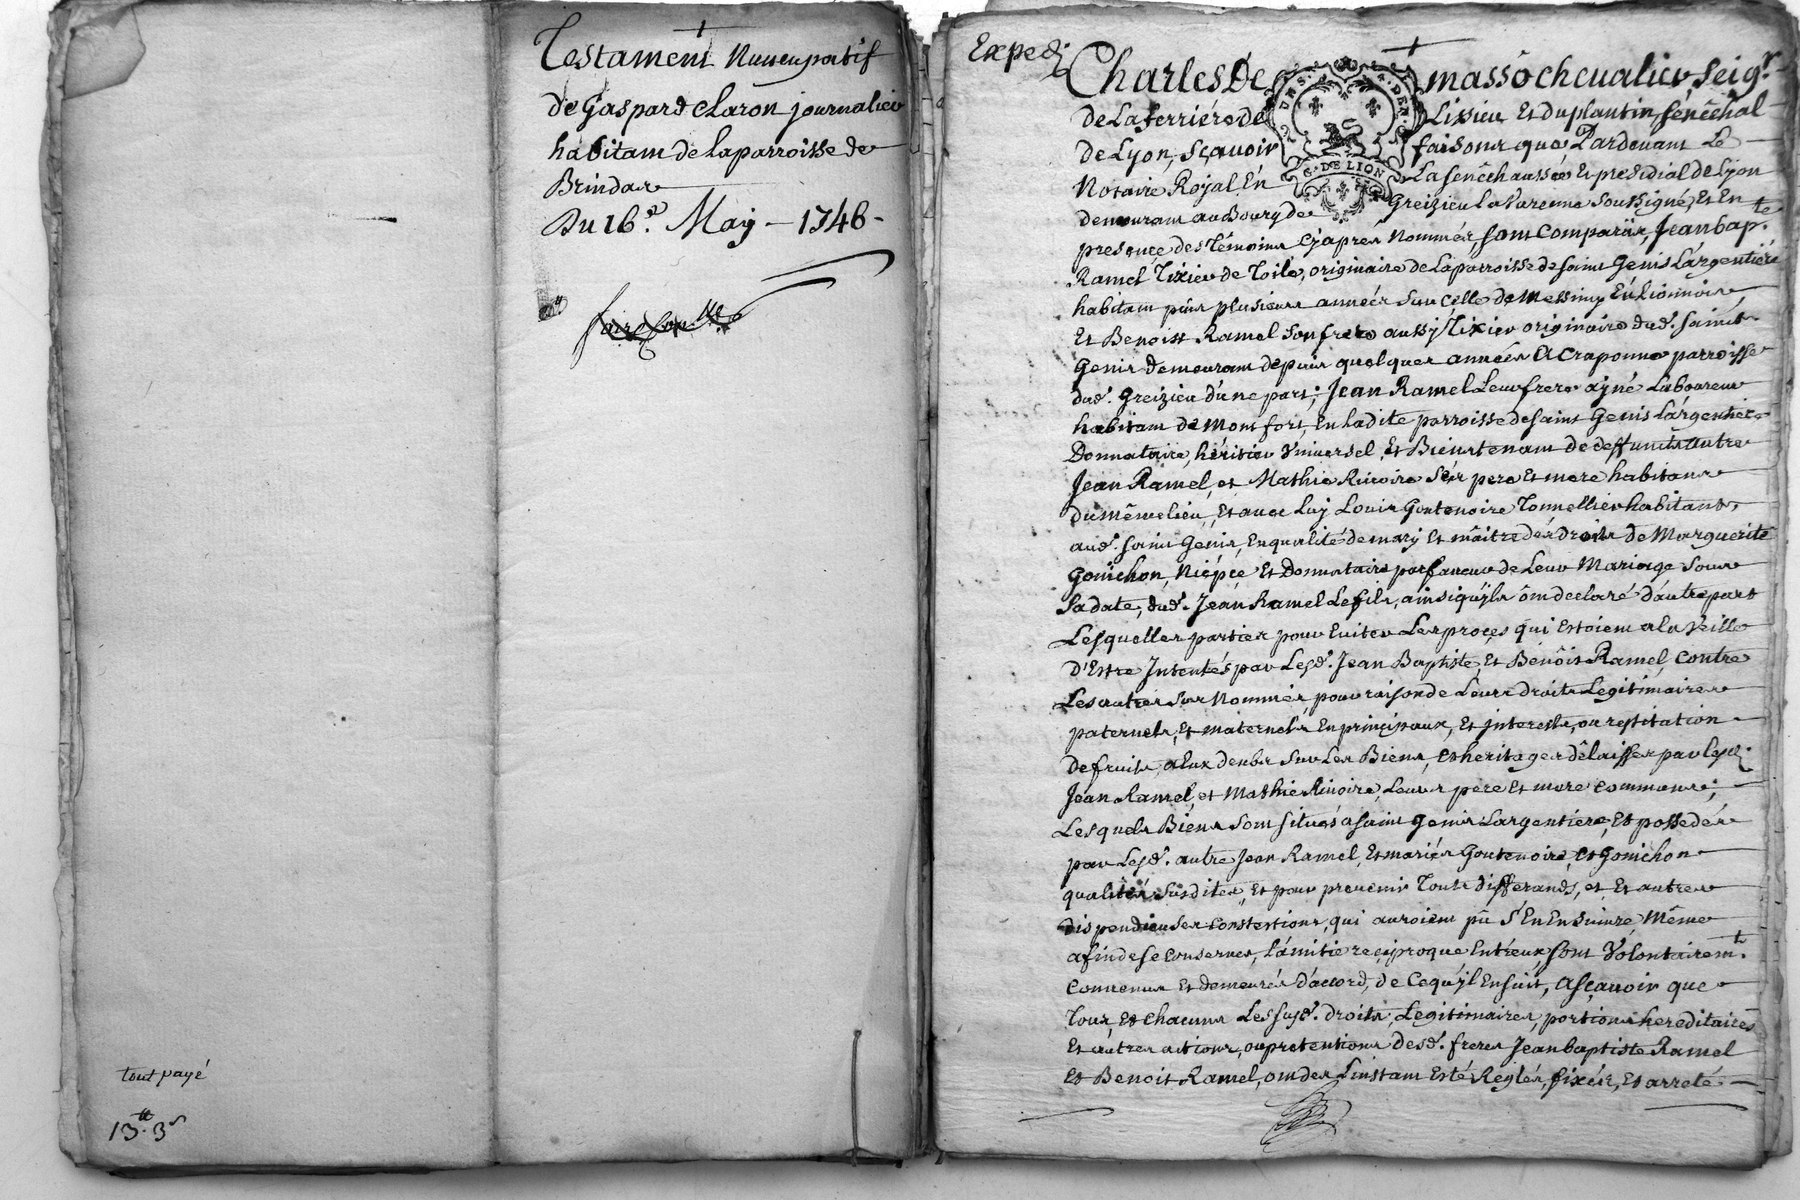 Testament Nuncupatif
de Gaspard Claron journalier
habitant de la parroisse de
Brindas
Du 16.e May - 1746 -
tout payé
13.tt 3s
Expedié
Charles De massô chevalier Seigr.
de La ferrière de Lissieu Et du plantin, senêchal
de Lyon, Sçavoir faisons que Pardevant Le
Notaire Royal En La senêchaussée Et presidial de Lyon
demeurant au Bourg de Greizieu La Varenne soussigné, Et En
presence des têmoins cÿaprès Nommés, sont comparûs, Jean bapte.
Ramel Tixier de Toile, originaire de La parroisse de saint Genis L'argentière
habitant puis plusieurs années sur celle de Messimy En Lionnois,
Et Benoist Ramel son frere aussy Tixier originaire dud. saint
Genis demeurant depuis quelques années A Craponne parroisse
dud. Greizieu d'une part; Jean Ramel Leur frere ayné Laboureur
habitant de Montfort En Ladite parroisse de saint Genis L'argentiere
Donnataire, héritier Universel, Et Bienstenant de deffunts autre
Jean Ramel, et Mathie Rivoire ses pere Et mere habitans
du même lieu, Et avec Luy Louis Goutenoire Tonnellier habitant,
aud. saint Genis, En qualité de mary Et maître des droits de Marguerite
Gonichon, Niépce Et Donnataire par faveur de Leur Mariage sous
sa date, dud. Jean Ramel Le fils, ainsi qu'yls ont declaré d'autre part
Lesquelles parties pour Eviter Les procès qui Estoient a la Veille
D'Estre Intentés par Lesd. Jean Baptiste, Et Benôit Ramel, contre
Les autres sus Nommés, pour raison de Leurs droits Legitimaires
paternels, Et maternels En principaux, Et interests, ou restitation
de fruits, a Eux deubs sur Les Biens, Et heritages délaissés par Lesd.
Jean Ramel, et Mathie Rivoire, Leurs père Et mere communs;
Lesquels Biens sont situés a saint Genis Largentière, Et possedés
par Lesd. autre Jean Ramel, Et mariés Goutenoire, Et Gonichon
qualités susdites, Et pour prevenir Touts differands, et Et autres
dispendieuses contestions, qui auroient pû S'En Ensuivre, Même
afin de se conserver, L'amitié reciproque Entreux, sont Volontairemt.
convenus Et demeurés d'accord, de Ce qu'yl Ensuit, Asçavoir que
Tous, Et chacuns Les susd. droits, Legitimaires, portions hereditaires
Et autres actions, ou pretentions desd. freres Jean baptiste Ramel
Et Benoit Ramel, ont dès L'instant Esté Reglés, fixés, Et arreté